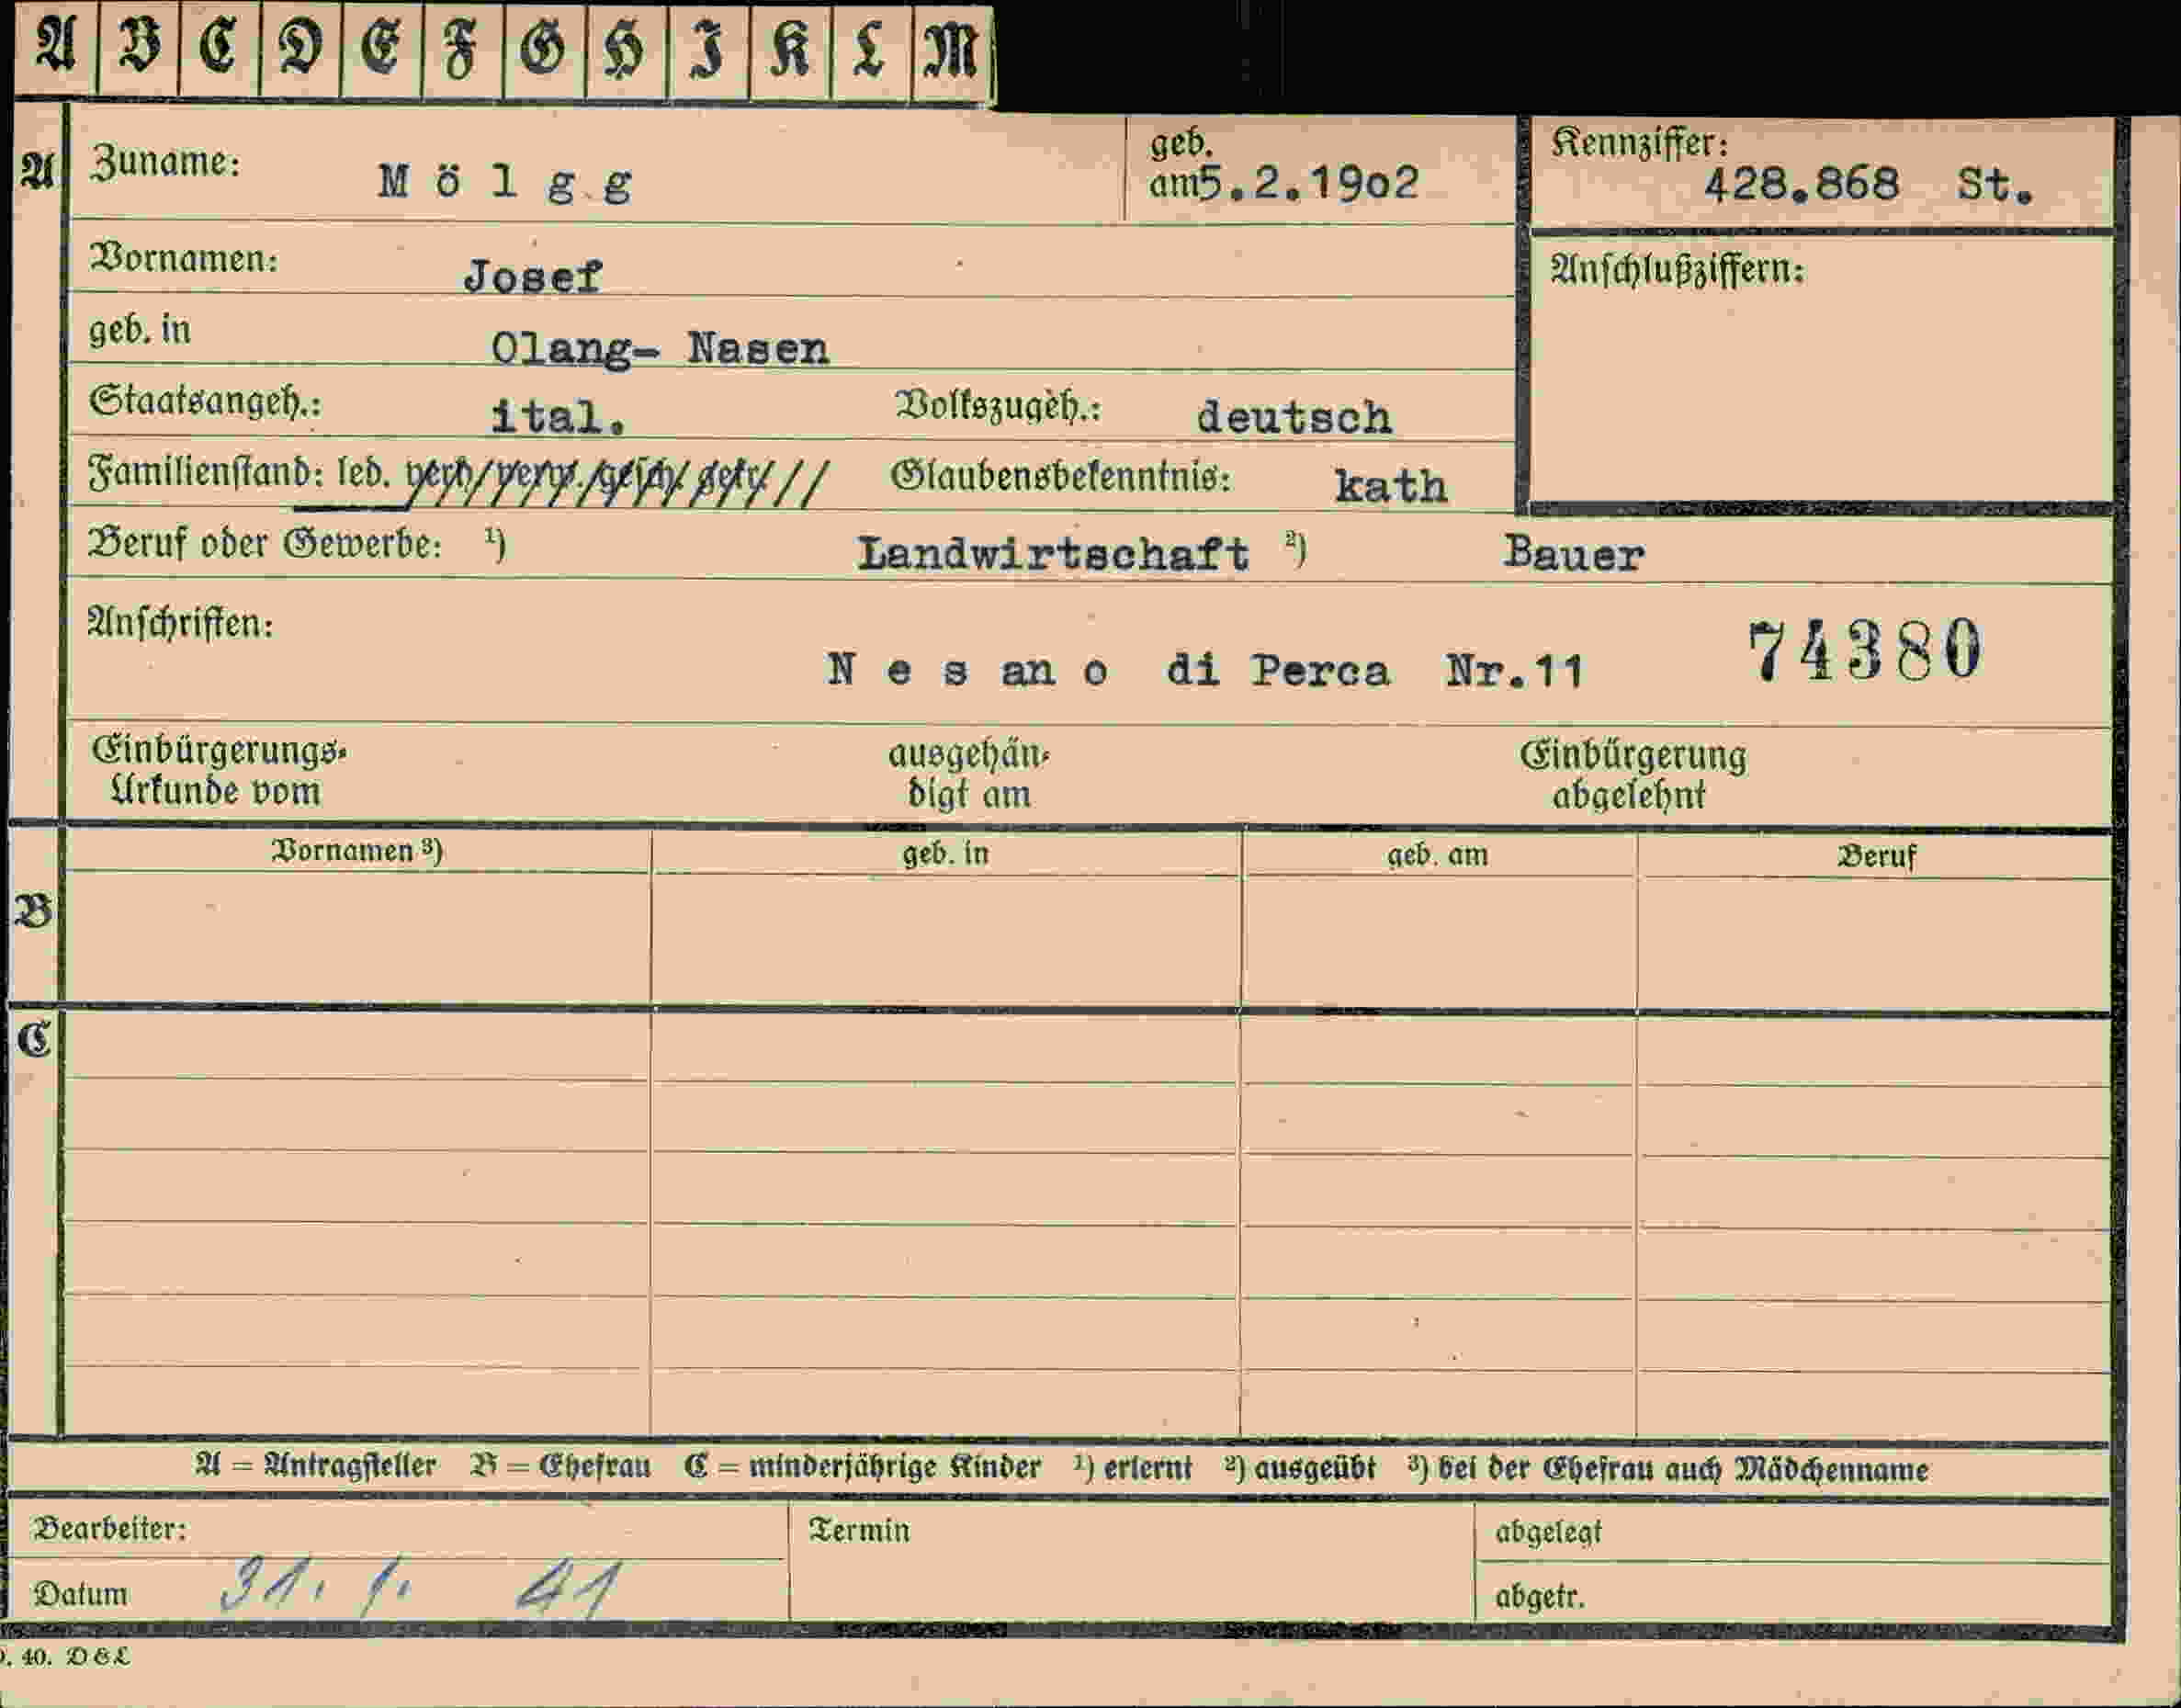 A B C D E F G H I K L M
A Zuname: Mölgg geb. am 5.2.19o2 Kennziffer: 428.868 St.
Vornamen: Josef Anschlußziffern:
geb. in Olang- Nasen
Staatsangeh.: ital. Volkszugeh.: deutsch
Familienstand: led. verh/verw./gesch/getr/// Glaubensbekenntnis: kath
Beruf oder Gewerbe: ¹) Landwirtschaft ²) Bauer
Anschriften:
N e s an o di Perca Nr.11 74380
Einbürgerungs- ausgehän- Einbürgerung
Urkunde vom digt am abgelehnt
Vornamen ³) geb. in geb. am Beruf
B
C
A = Antragsteller B = Ehefrau C = minderjährige Kinder ¹) erlernt ²) ausgeübt ³) bei der Ehefrau auch Mädchenname
Bearbeiter: Termin abgelegt
Datum 31. 1. 41 abgetr.
40. D & L